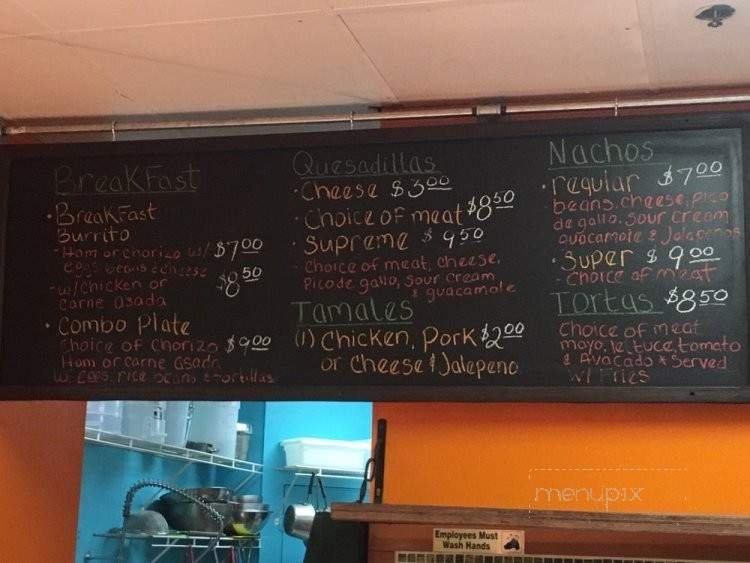 BreaKFast
• BreaKFast
Burrito
- Ham or chorizo w/ $7.00
eggs beans & cheese
- w/chicken or $8.50
carne asada
• Combo Plate
Choice of Chorizo $9.00
Ham or carne asada
w/ eggs, rice beans & tortillas
Quesadillas
• Cheese $3.00
• Choice of meat $8.50
• Supreme $9.50
- Choice of meat, cheese,
Pico de gallo, Sour cream
& guacamole
Tamales
(1) Chicken, Pork $2.00
or Cheese & Jalapeno
Nachos
• regular $7.00
beans, cheese, pico
de gallo, sour cream
guacamole & Jalapenos
• Super $9.00
- Choice of meat
Tortas $8.50
Choice of meat
mayo, lettuce, tomato
& Avacado * Served
w/ Fries
menupix
Employees Must
Wash Hands